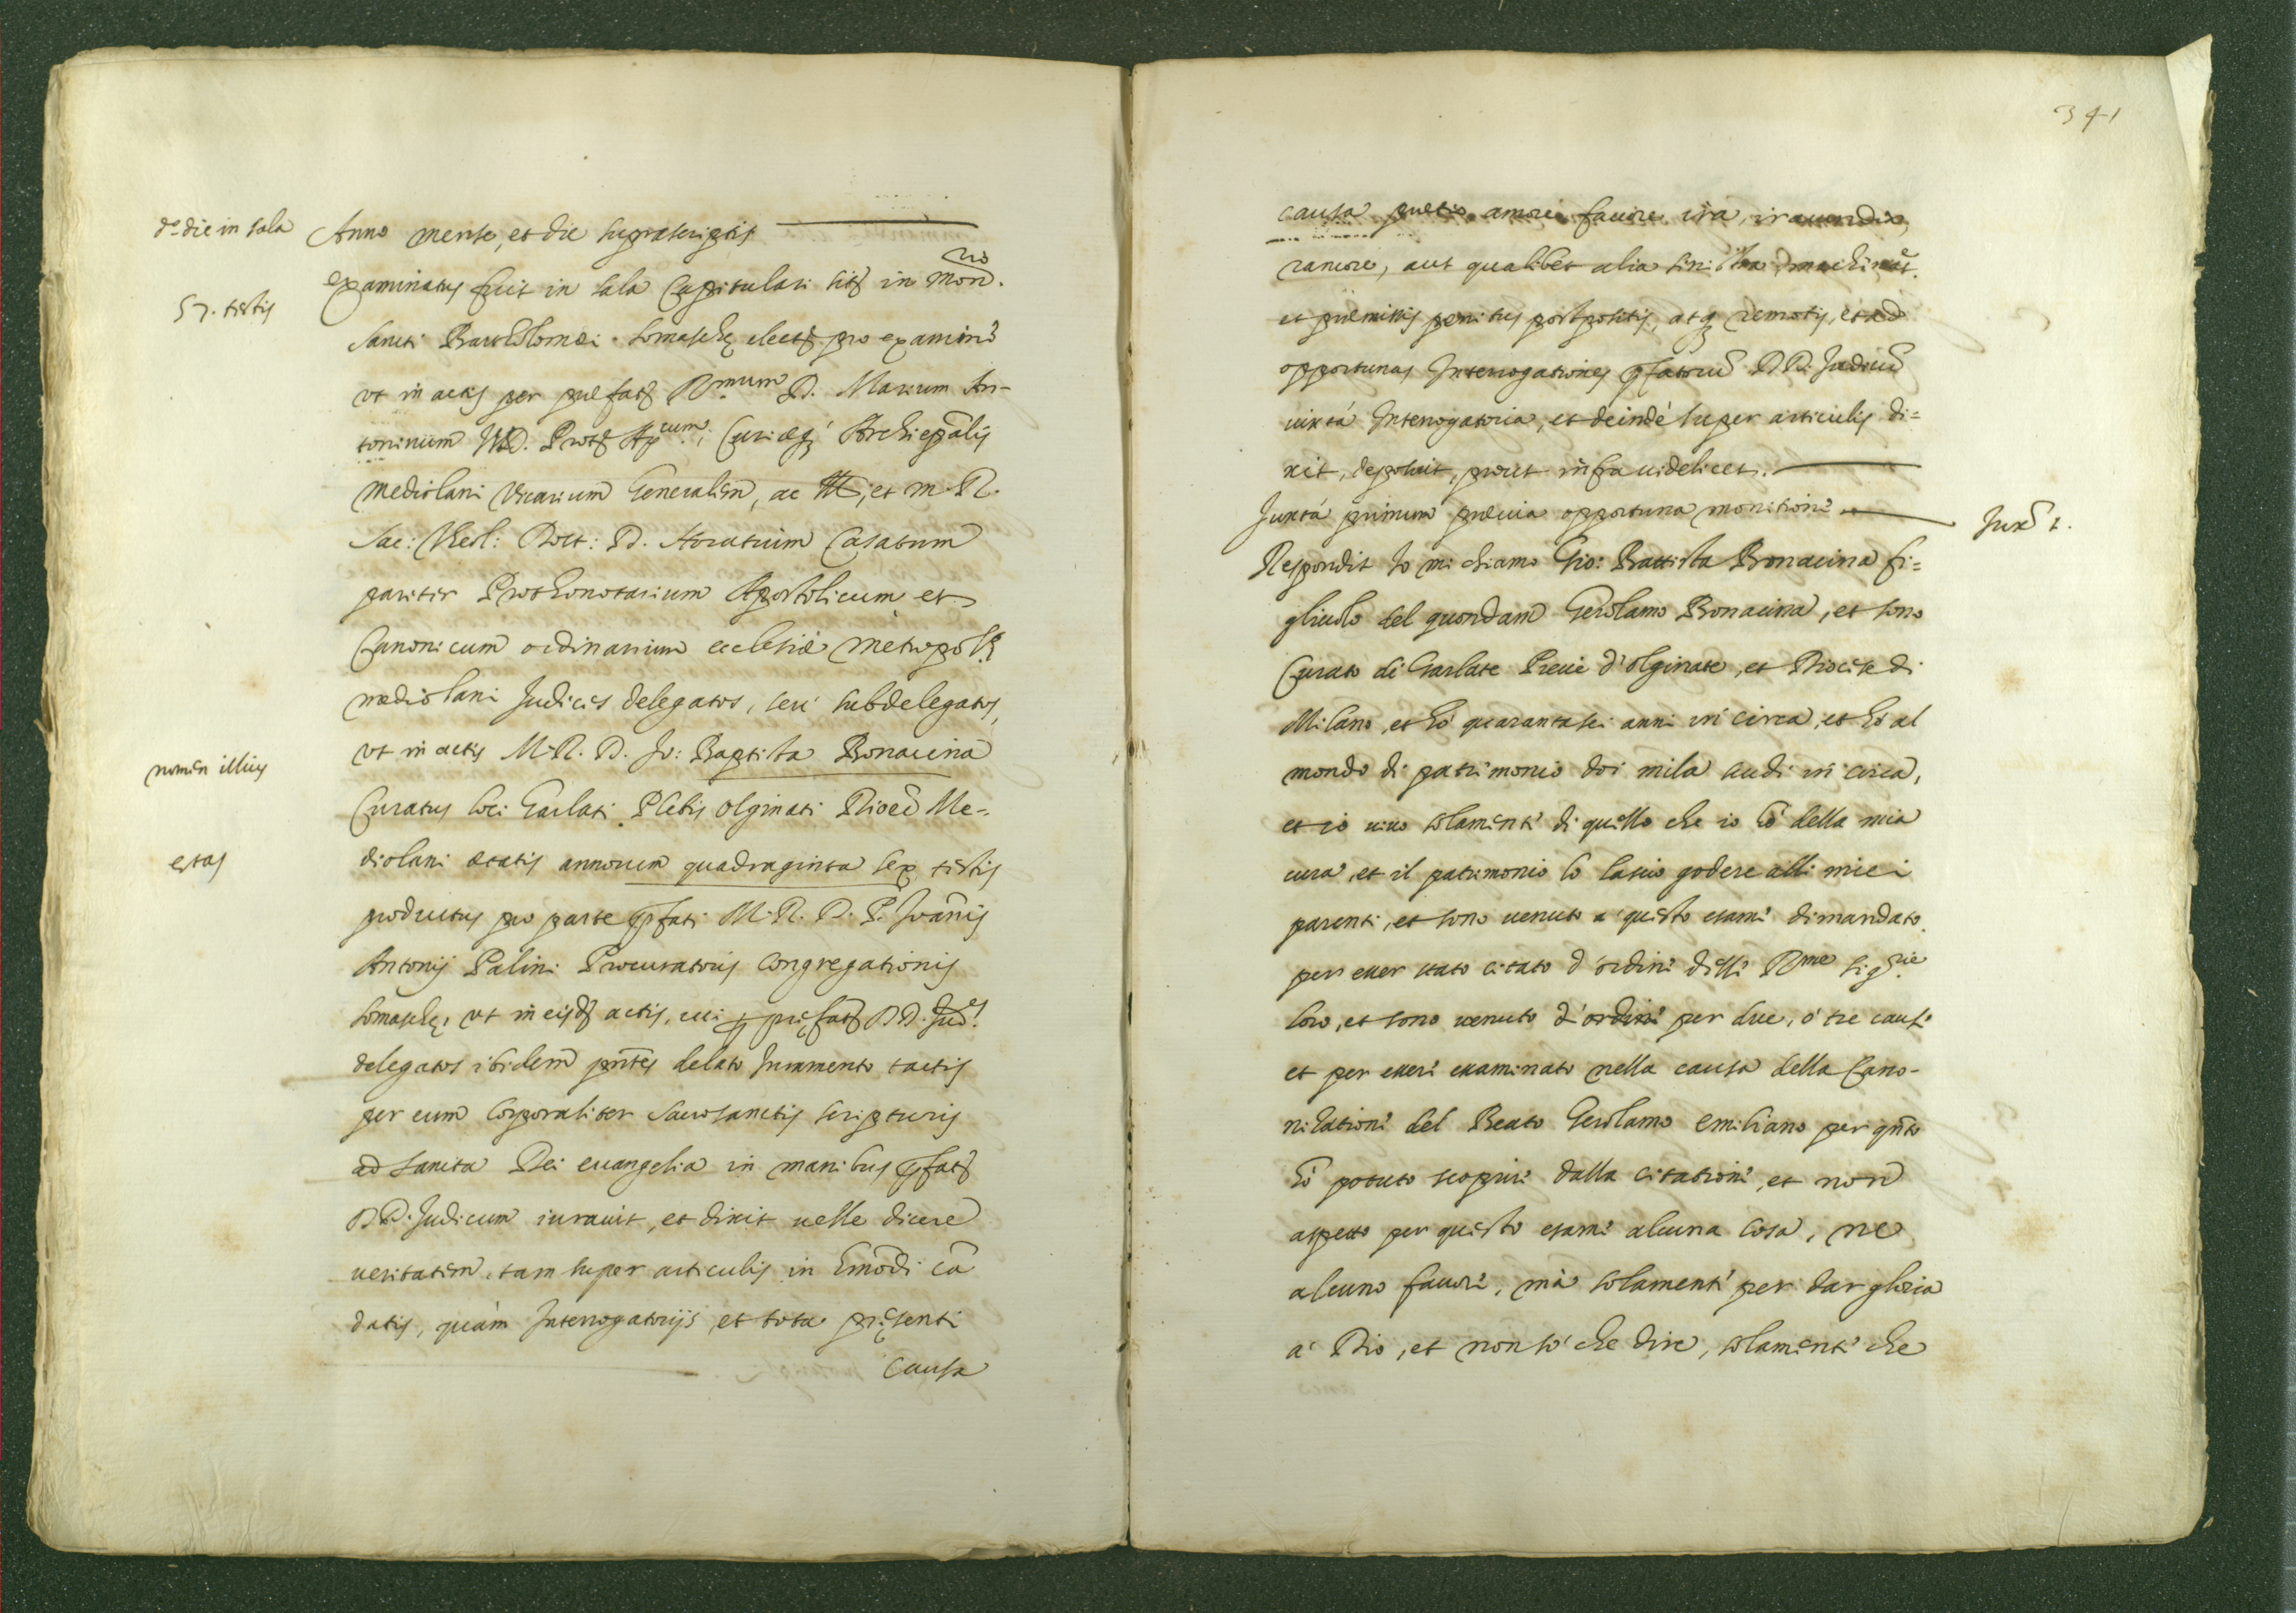 d.o die in sala
Anno mense, et die suprascriptis
examinatus fuit in sala Capitulari sit. in Mon.rio
57. testis
Sancti Bartholomei Somaschę elect. pro examine
ut in actis per prefat. R.mum D. Marcum An-
toninum I.V.D. Prot. Ap.cum, Curięq; Archiepālis
Mediolani Vicarium Generalem, ac et m. R.
Sac: Theol: Doct: D. Horatium Casatum
pariter Prothonotarium Apostolicum et
Canonicum ordinarium ecclesiæ Metropol.
mediolani Judices delegatos, seu subdelegatos,
ut in actis M. R. D. Jo: Baptista Bonacina
nomen illius
Curatus loci Garlati Plebis Olginati Dioec̄ Me-
diolani ætatis annorum quadraginta sex testis
etas
productus pro parte p̄fati M. R. D. P. Joānis
Antonij Palini Procuratoris Congregationis
Somaschę, ut in eisd. actis, cui p̱ pręfat. DD. Jud.es
delegatos ibidem pn̄tes delato Juramento tactis
per eum corporaliter Sacrosanctis scripturis
ad Sancta Dei euangelia in manibus p̄fat.
DD. Judicum iurauit, et dixit uelle dicere
ueritatem, tam super articulis in Em̄odi cā
datis, quàm Interrogatorijs, et tota pręsenti
causa
341
causa pretio amore fauore ira, iracundia,
rancore, aut qualibet alia sinistra machinat.e
et premissis penitus postpositis, atq; remotis, et ad
opportunas Interrogationes p̄fatorū DD. Judicū
iuxtà Interrogatoria, et deindè super articulis di=
xit, deposuit, prout infra uidelicet.
Juxtà primum preuia opportuna monitione
Jux̄ 1.
Respondit Io mi chiamo Gio: Battista Bonacina fi=
gliuolo del quondam Gerolamo Bonacina, et sono
Curato di Garlate Pieue d'olginate, et Diocese di
Milano, et hò quarantasei anni in circa, et hò al
mondo di patrimonio doi mila scudi in circa,
et io uiuo solamente di quello che io hò della mia
cura, et il patrimonio lo lascio godere alli miei
parenti, et sono uenuto a questo esame dimandato
per esser stato citato d'ordine delle R.me Sig.rie
loro, et sono uenuto d'ordine per due, ò tre cause
et per essere essaminato nella causa della Cano-
nizatione del Beato Gerolamo Emiliano per qn̄to
hò potuto scoprire dalla citatione, et non
aspetto per questo esame alcuna cosa, ne
alcuno fauore, mà solamente per dar gloria
a Dio, et non sò che dire, solamente che